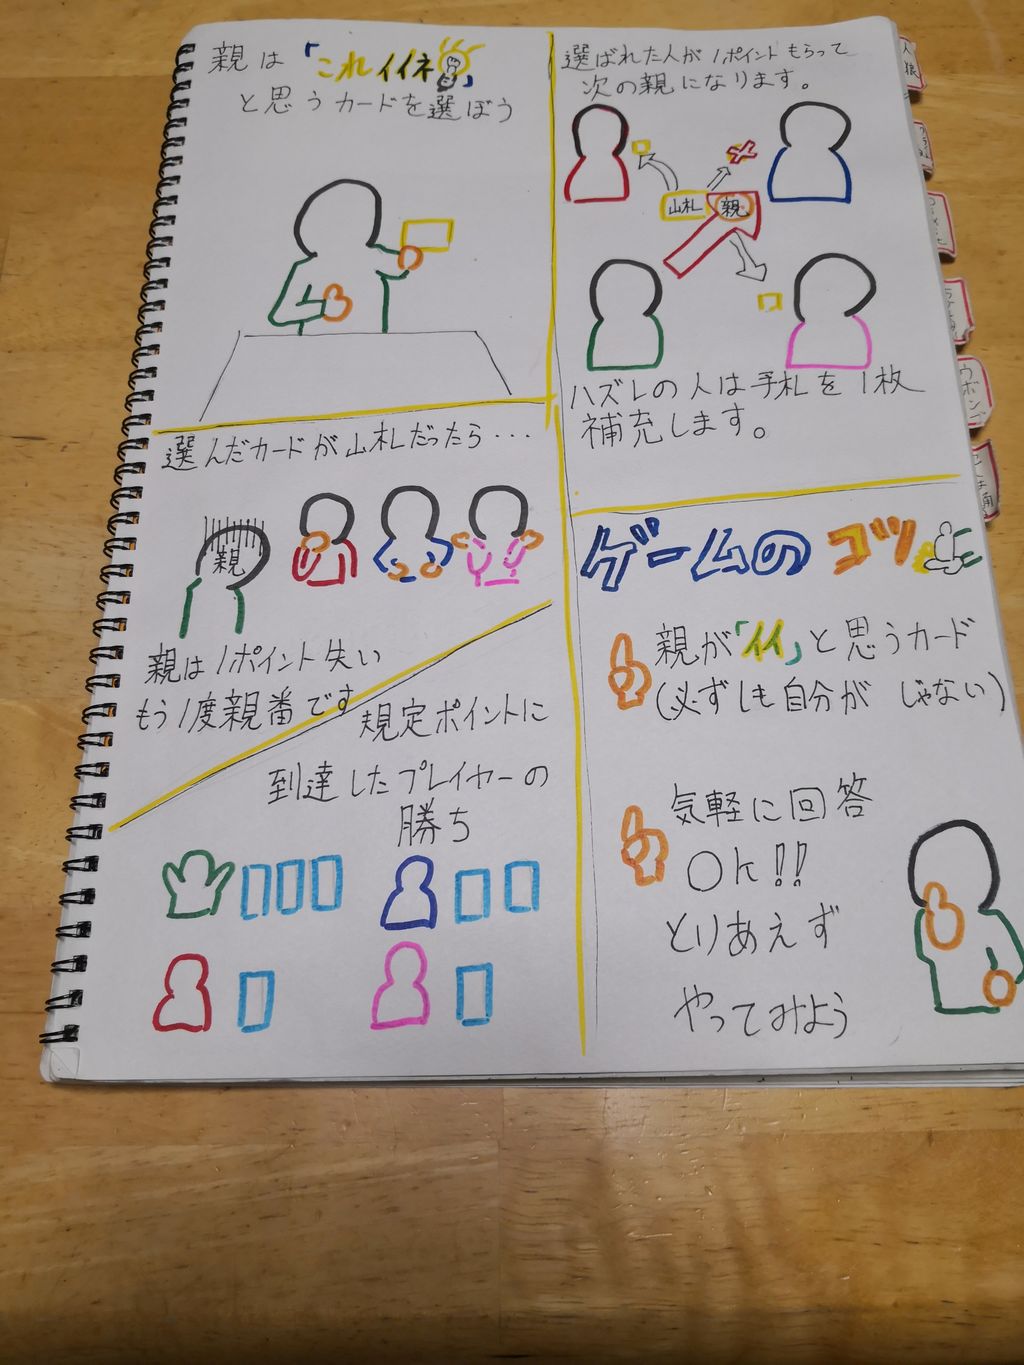 親は「これイイネ」
と思うカードを選ぼう
選ばれた人が1ポイントもらって
次の親になります。
山札
親
ハズレの人は手札を1枚
補充します。
選んだカードが山札だったら…
親
親は1ポイント失い
もう1度親番です
規定ポイントに
到達したプレイヤーの
勝ち
ゲームのコツ
親が「イイ」と思うカード
(必ずしも自分が じゃない)
気軽に回答
OK!!
とりあえず
やってみよう
人狼
ウボンゴ